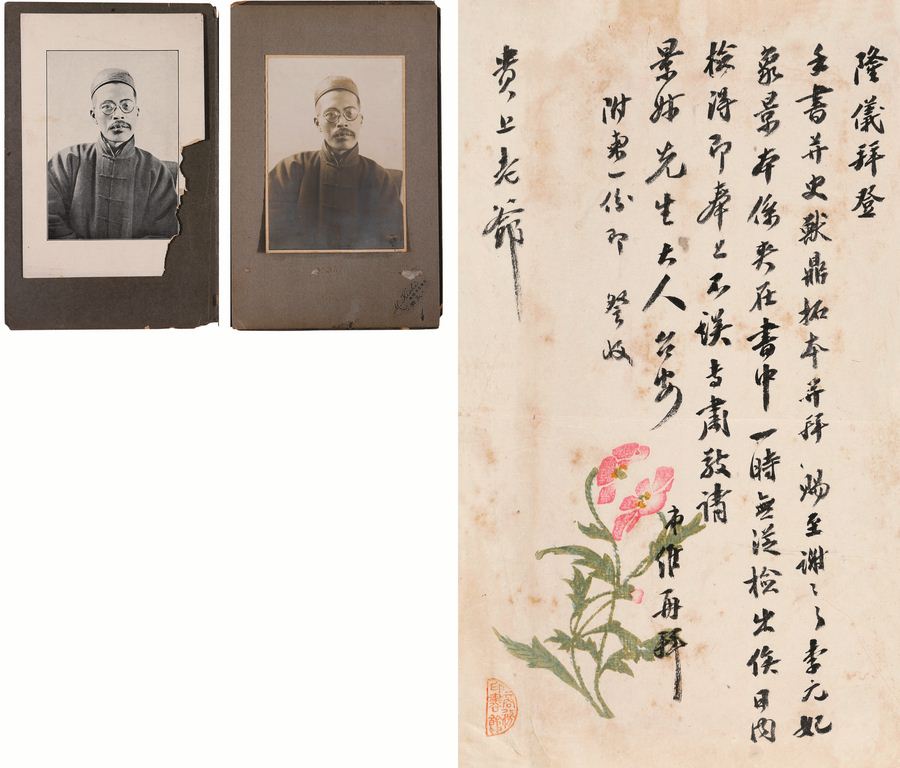 隆儀拜登
手書并史獸鼎拓本并拜 賜至謝々李元妃
象景本係夾在書中一時無從檢出俟日內
檢得即奉上不誤專肅敬請
景 先生大人台安
再拜
附 一份即 詧收
貴上老爺